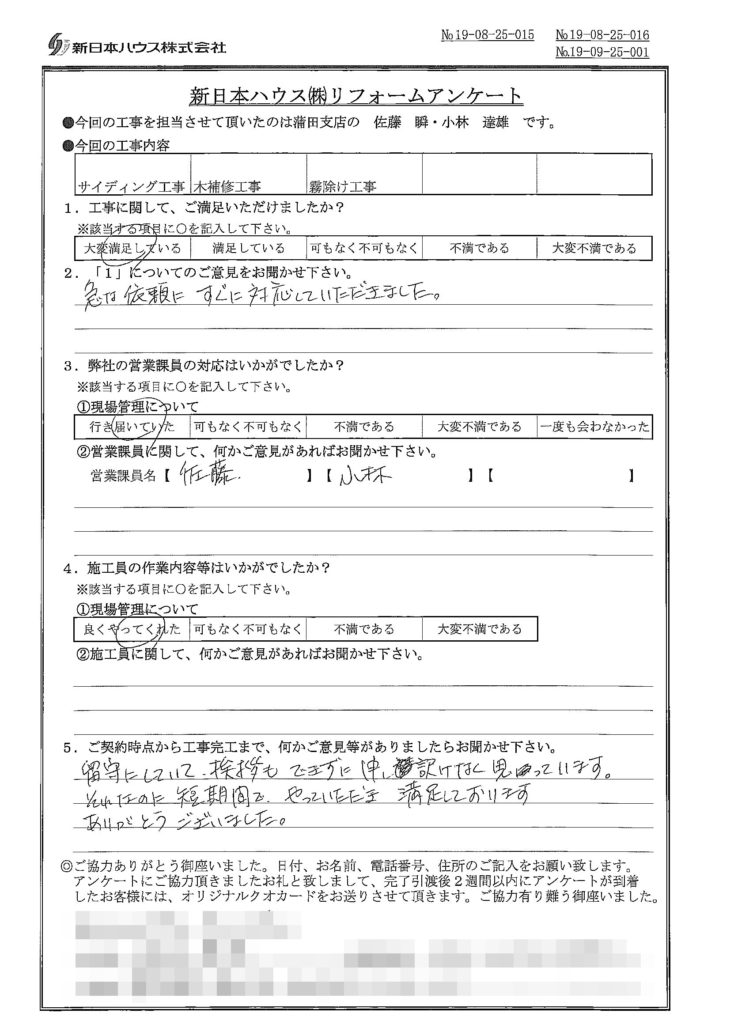 新日本ハウス株式会社
№19-08-25-015 №19-08-25-016
№.19-09-25-001
新日本ハウス㈱リフォームアンケート
●今回の工事を担当させて頂いたのは蒲田支店の 佐藤 瞬・小林 達雄 です。
●今回の工事内容
サイディング工事 木補修工事 霧除け工事
1．工事に関して、ご満足いただけましたか？
※該当する項目に○を記入して下さい。
大変満足している 満足している 可もなく不可もなく 不満である 大変不満である
2．「1」についてのご意見をお聞かせ下さい。
急な依頼に すぐに対応していただきました。
3．弊社の営業課員の対応はいかがでしたか？
※該当する項目に○を記入して下さい。
①現場管理について
行き届いていた 可もなく不可もなく 不満である 大変不満である 一度も会わなかった
②営業課員に関して、何かご意見があればお聞かせ下さい。
営業課員名【 佐藤 】【 小林 】【 】
4．施工員の作業内容等はいかがでしたか？
※該当する項目に○を記入して下さい。
①現場管理について
良くやってくれた 可もなく不可もなく 不満である 大変不満である
②施工員に関して、何かご意見があればお聞かせ下さい。
5．ご契約時点から工事完工まで、何かご意見等がありましたらお聞かせ下さい。
留守にしていて、挨拶も できずに 申し訳けなく 思っています。
それなのに 短期間で、やっていただき 満足しております
ありがとう ございました。
◎ご協力ありがとう御座いました。日付、お名前、電話番号、住所のご記入をお願い致します。
アンケートにご協力頂きましたお礼と致しまして、完了引渡後２週間以内にアンケートが到着
したお客様には、オリジナルクオカードをお送りさせて頂きます。ご協力有り難う御座いました。